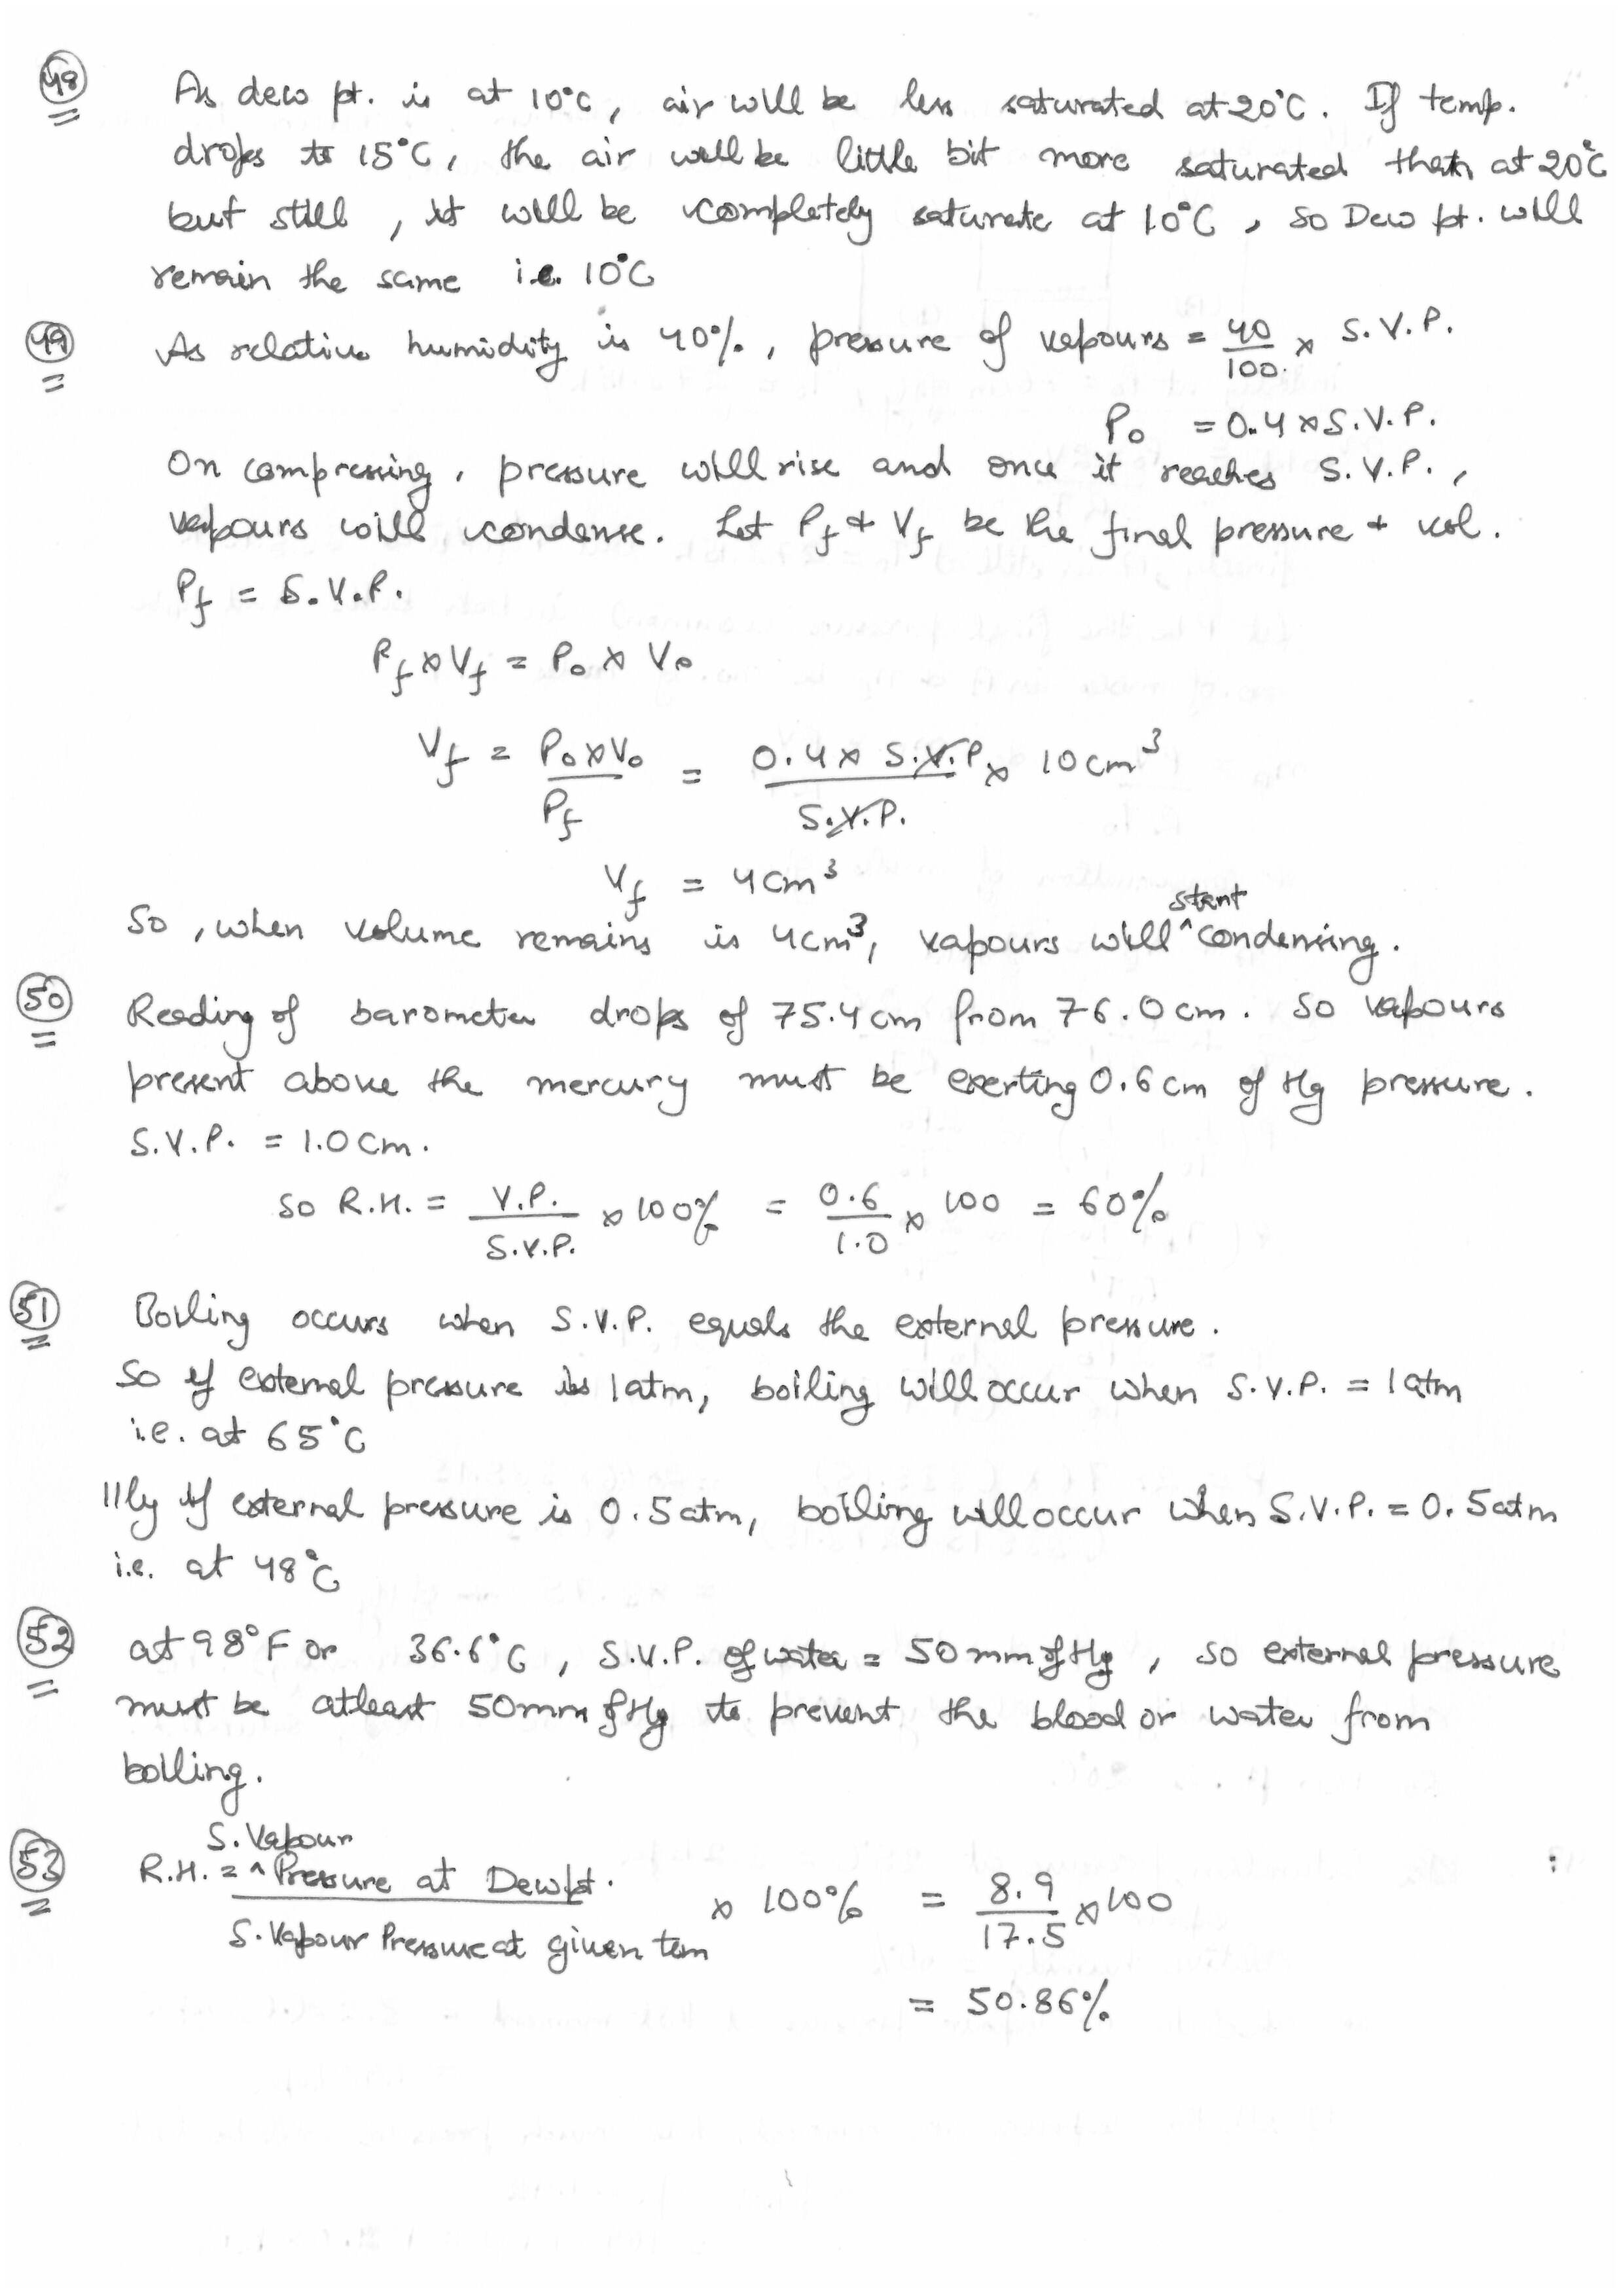 48 As dew pt. is at 10°C, air will be less saturated at 20°C. If temp.
drops to 15°C, the air will be little bit more saturated than at 20°C
but still, it will be completely saturate at 10°C, so Dew pt. will
remain the same i.e. 10°C
49 As relative humidity is 40%, pressure of vapours = 40/100 × S.V.P.
P₀ = 0.4 × S.V.P.
On compressing, pressure will rise and once it reaches S.V.P.,
vapours will condense. Let P_f & V_f be the final pressure & vol.
P_f = S.V.P.
P_f × V_f = P₀ × V₀
V_f = P₀ × V₀ / P_f = 0.4 × S.V.P × 10 cm³ / S.V.P.
V_f = 4 cm³
So, when volume remains is 4cm³, vapours will ^start condensing.
50 Reading of barometer drops of 75.4 cm from 76.0 cm. So vapours
present above the mercury must be exerting 0.6 cm of Hg pressure.
S.V.P. = 1.0 cm.
So R.H. = V.P. / S.V.P. × 100% = 0.6 / 1.0 × 100 = 60%
51 Boiling occurs when S.V.P. equals the external pressure.
So if external pressure is 1 atm, boiling will occur when S.V.P. = 1 atm
i.e. at 65°C
llly if external pressure is 0.5 atm, boiling will occur when S.V.P. = 0.5 atm
i.e. at 48°C
52 at 98°F or 36.6°C, S.V.P. of water = 50 mm of Hg, so external pressure
must be atleast 50mm of Hg to prevent the blood or water from
boiling.
53 R.H. = ^S. Vapour Pressure at Dew pt. / S. Vapour Pressure at given tem × 100% = 8.9 / 17.5 × 100
= 50.86%